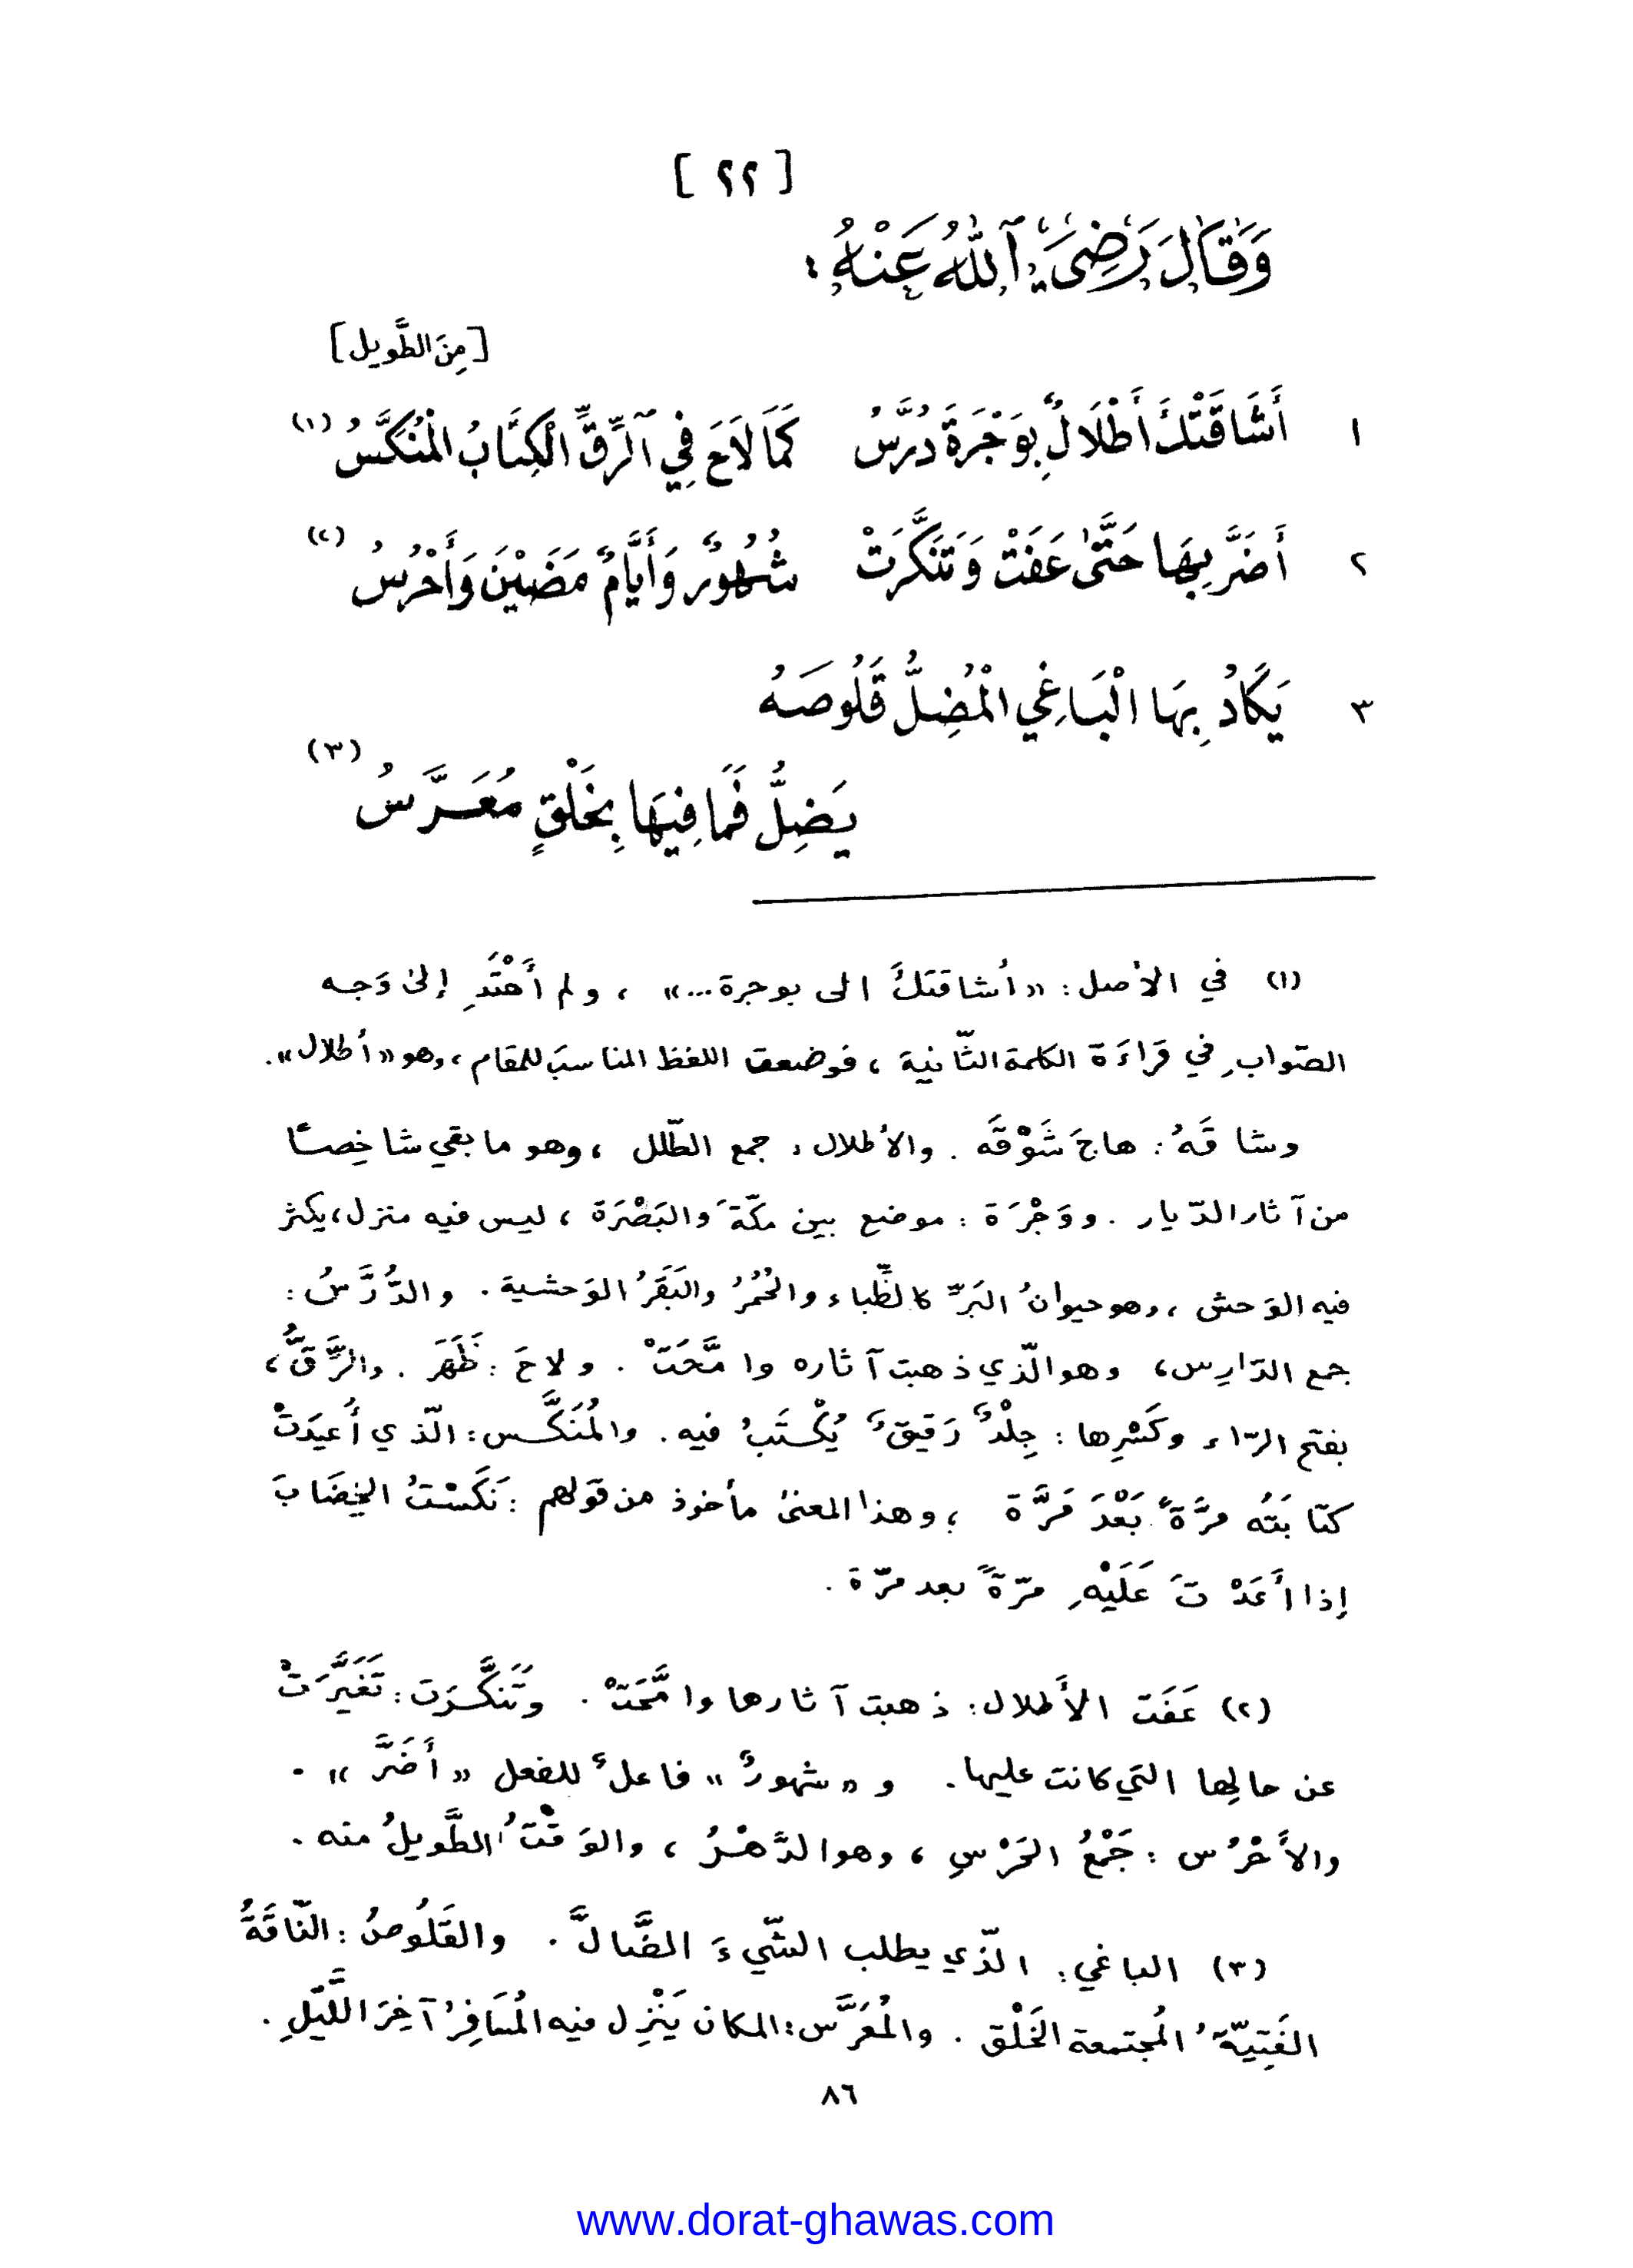 [ ٢٢ ]
وَقَالَ رَضِيَ ٱللهُ عَنْهُ :
[مِنَ الطَّويل]
١ أَشَاقَتْكَ أَطْلَالٌ بِوَجْرَةَ دُرَّسُ كَمَا لَاحَ فِي ٱلرِّقِّ الْكِتَابُ الْمُنَكَّسُ (١)
٢ أَضَرَّ بِهَا حَتَّىٰ عَفَتْ وَتَنَكَّرَتْ شُهُورٌ وَأَيَّامٌ مَضَيْنَ وَأَحْرُسُ (٢)
٣ يَكَادُ بِهَا الْبَاغِي الْمُضِلُّ قَلُوصَهُ
يَضِلُّ فَمَا فِيهَا بِخَلْقٍ مُعَرَّسُ (٣)
(١) في الأصل : «أشاقتكَ الى بوجرة...» ، ولم أَهْتَدِ إلىٰ وَجه
الصّوابِ في قراءَة الكلمة الثّانية ، فوضعت اللفظ المناسبَ للمقام ، وهو «أطلال».
وشاقَهُ : هاجَ شَوْقَه . والأطلال : جمع الطّلل ، وهو ما بقي شاخِصًا
من آثار الدّيار . ووَجْرَة : موضع بين مكّةَ والبَصْرَة ، ليس فيه منزل ، يكثر
فيه الوَحش ، وهو حيوانُ البَرِّ كالظِّباء والحُمُرُ والبَقَرُ الوَحشية . والدُّرَّسُ :
جمع الدّارِس ، وهو الّذي ذهبت آثاره وامَّحَتْ . ولاحَ : ظَهَرَ . والرَّقُّ ،
بفتح الرّاء وكَسْرِها : جِلْدٌ رَقيقٌ يُكْتَبُ فيه . والمُنَكَّس : الّذي أُعيدَتْ
كتابَتُه مرَّةً بَعْدَ مَرَّة ، وهذا المعنىٰ مأخوذ من قولهم : نَكَسْتُ الخِضَابَ
إذا أَعَدْتَ عَلَيْهِ مرّةً بعد مرّة .
(٢) عَفَت الأَطلال : ذهبت آثارها وامَّحَتْ . وتَنَكَّرَت : تَغَيَّرَتْ
عن حالِها التي كانت عليها . و «شهورٌ» فاعلٌ للفعل «أَضَرَّ» .
والأَحْرُس : جَمْعُ الحَرْسِ ، وهو الدَّهْرُ ، والوَقْتُ الطَّويلُ منه .
(٣) الباغي : الّذي يطلب الشّيءَ الضَّالَّ . والقَلُوصُ : النّاقَةُ
الفَتِيّةُ المُجتمعة الخَلْق . والمُعَرَّس : المكان يَنْزِل فيه المُسَافِرُ آخِرَ اللَّيْلِ .
٨٦
www.dorat-ghawas.com